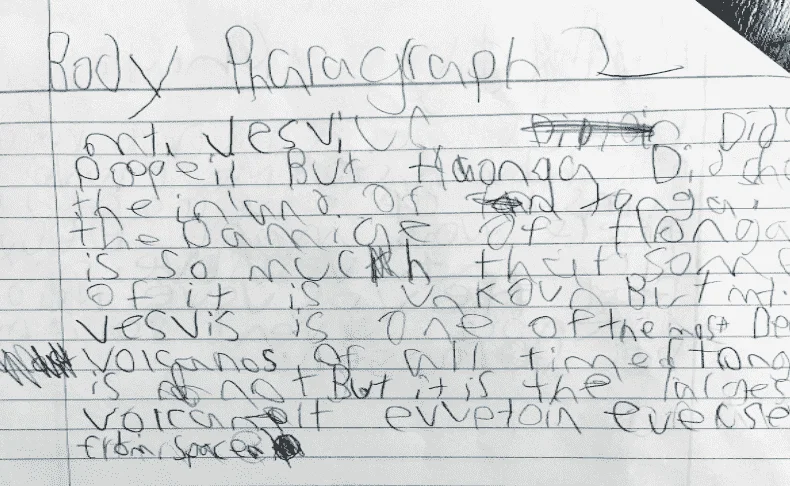 Body Pharagraph 2
mt. vesviuc Did
popeii But Haonga Did sh
the inland Of tonga.
the Damige of tlonga
is so much that som
Of it is unkoun But mt.
vesvis is one of the most De
volcanos of all time tong
is not But it is the larges
volcanoit evvetoin ever se
from space